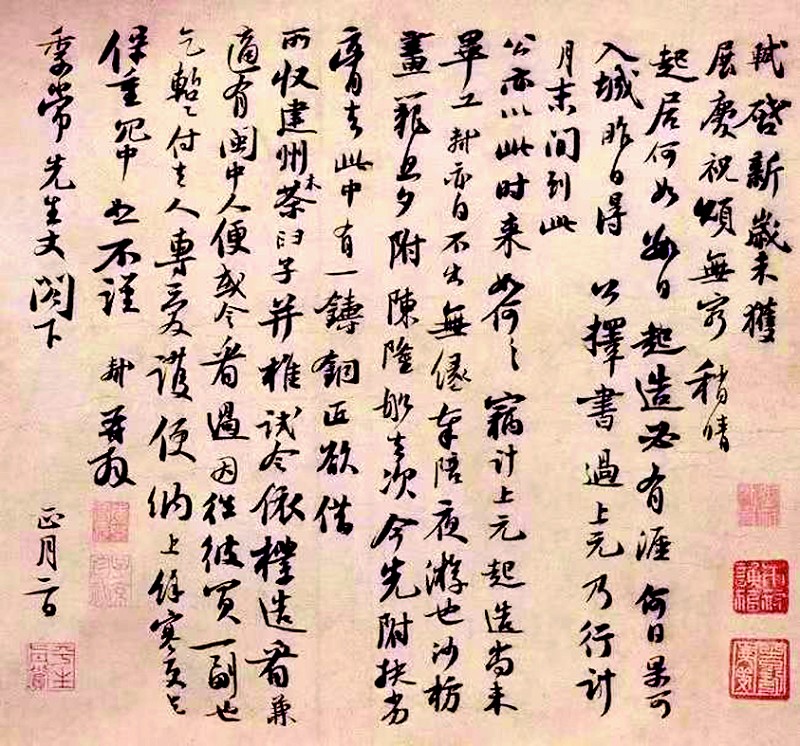 軾啓新歲未獲
展慶祝頌無窮稍晴
起居何如數日起造必有涯何日果可
入城昨日得公擇書過上元乃行計
月末間到此
公亦以此時來如何如何竊計上元起造尚未
畢工軾亦自不出無緣奉陪夜游也沙枋
畫籠旦夕附陳隆船去次今先附扶劣
膏去此中有一鑄銅匠欲借
所收建州木茶臼子并椎試令依樣造看兼
適有閩中人便或令看過因往彼買一副也
乞暫付去人專愛護便納上餘寒更乞
保重冗中恕不謹軾再拜
季常先生丈閣下
正月二日